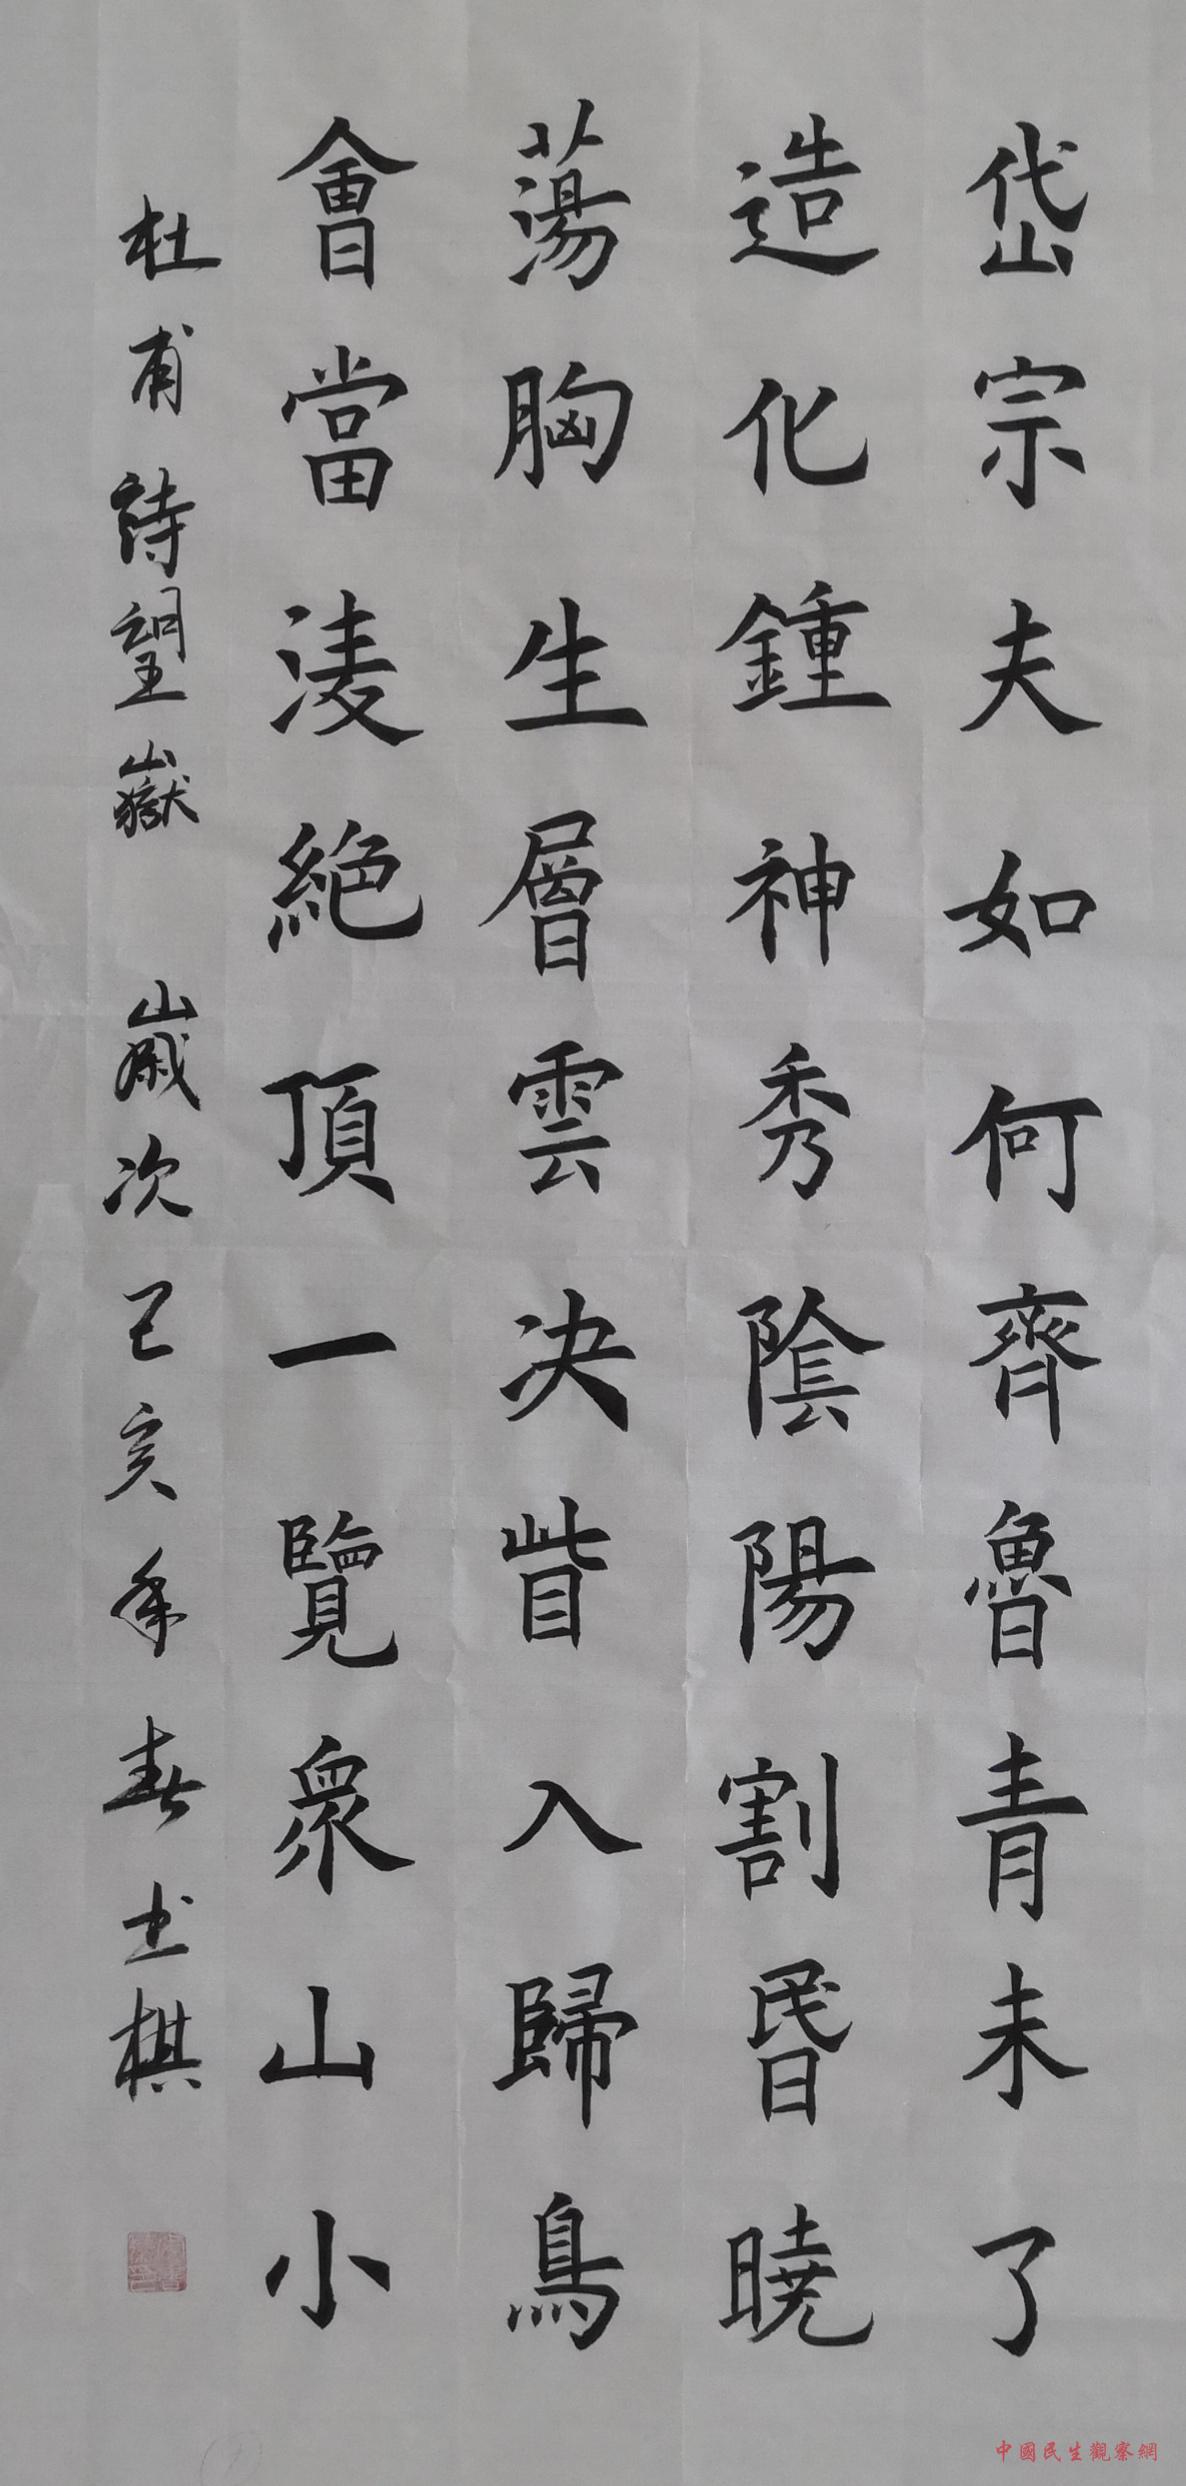 岱宗夫如何齊魯青未了
造化鍾神秀陰陽割昬曉
蕩胸生層雲決眥入歸鳥
會當淩絕頂一覽眾山小
杜甫詩望嶽 歲次己亥年春士棋
中國民生觀察網